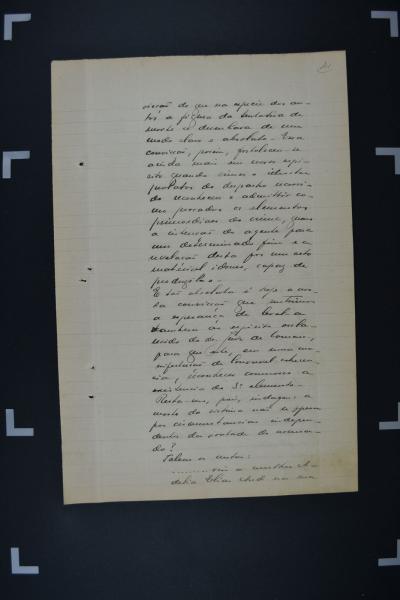 vicção de que na especie dos au-
tos a figura da tentativa de
morte se desenhava de um
modo claro e absoluto. Essa
convicção, porem, fortaleceu-se
ainda mais em nosso espi-
rito quando vimos o illustre
prolator do despacho recorri-
do reconhecer e admittir co-
mo provados os elementos
primordiaes do crime, quaes
a intenção do agente para
um determinado fim e a
revelação desta por um acto
material idoneo, capaz de
produzil-o.
E tão absoluta é hoje a nos-
sa convicção que nutrimos
a esperança de leval-a
tambem ao espirito
do dr. juiz de
para que elle, em uma ma-
nifestação de louvavel coheren-
cia, reconheça comnosco a
existencia do 3º elemento.
Resta-nos, pois, indagar: a
morte da victima não se operou
por circumstancias indepen-
dentes da vontade do accusa-
do?
Falem os autos:
......... a mulher A-
delia Elias